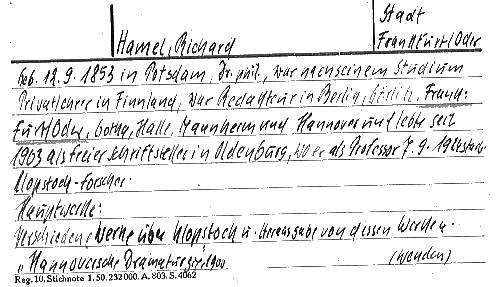 Stadt
Hamel, Richard Frankfurt/Oder
Geb. 12.9.1853 in Potsdam, Dr. phil., war nach seinem Studium
Privatlehrer in Finnland, war Redakteur in Berlin, Görlitz, Frank-
furt/Oder, Gotha, Halle, Mannheim und Hannover und lebte seit
1903 als freier Schriftsteller in Oldenburg, wo er als Professor 7.9.1924 starb
Klopstock-Forscher.
Hauptwerke:
Verschiedene Werke über Klopstock u. Herausgabe von dessen Werken.
"Hannoversche Dramaturgie, 1900
(Wenden)
Reg. 10, Stichnote 1. 50. 232 000. A. 803. S. 4062